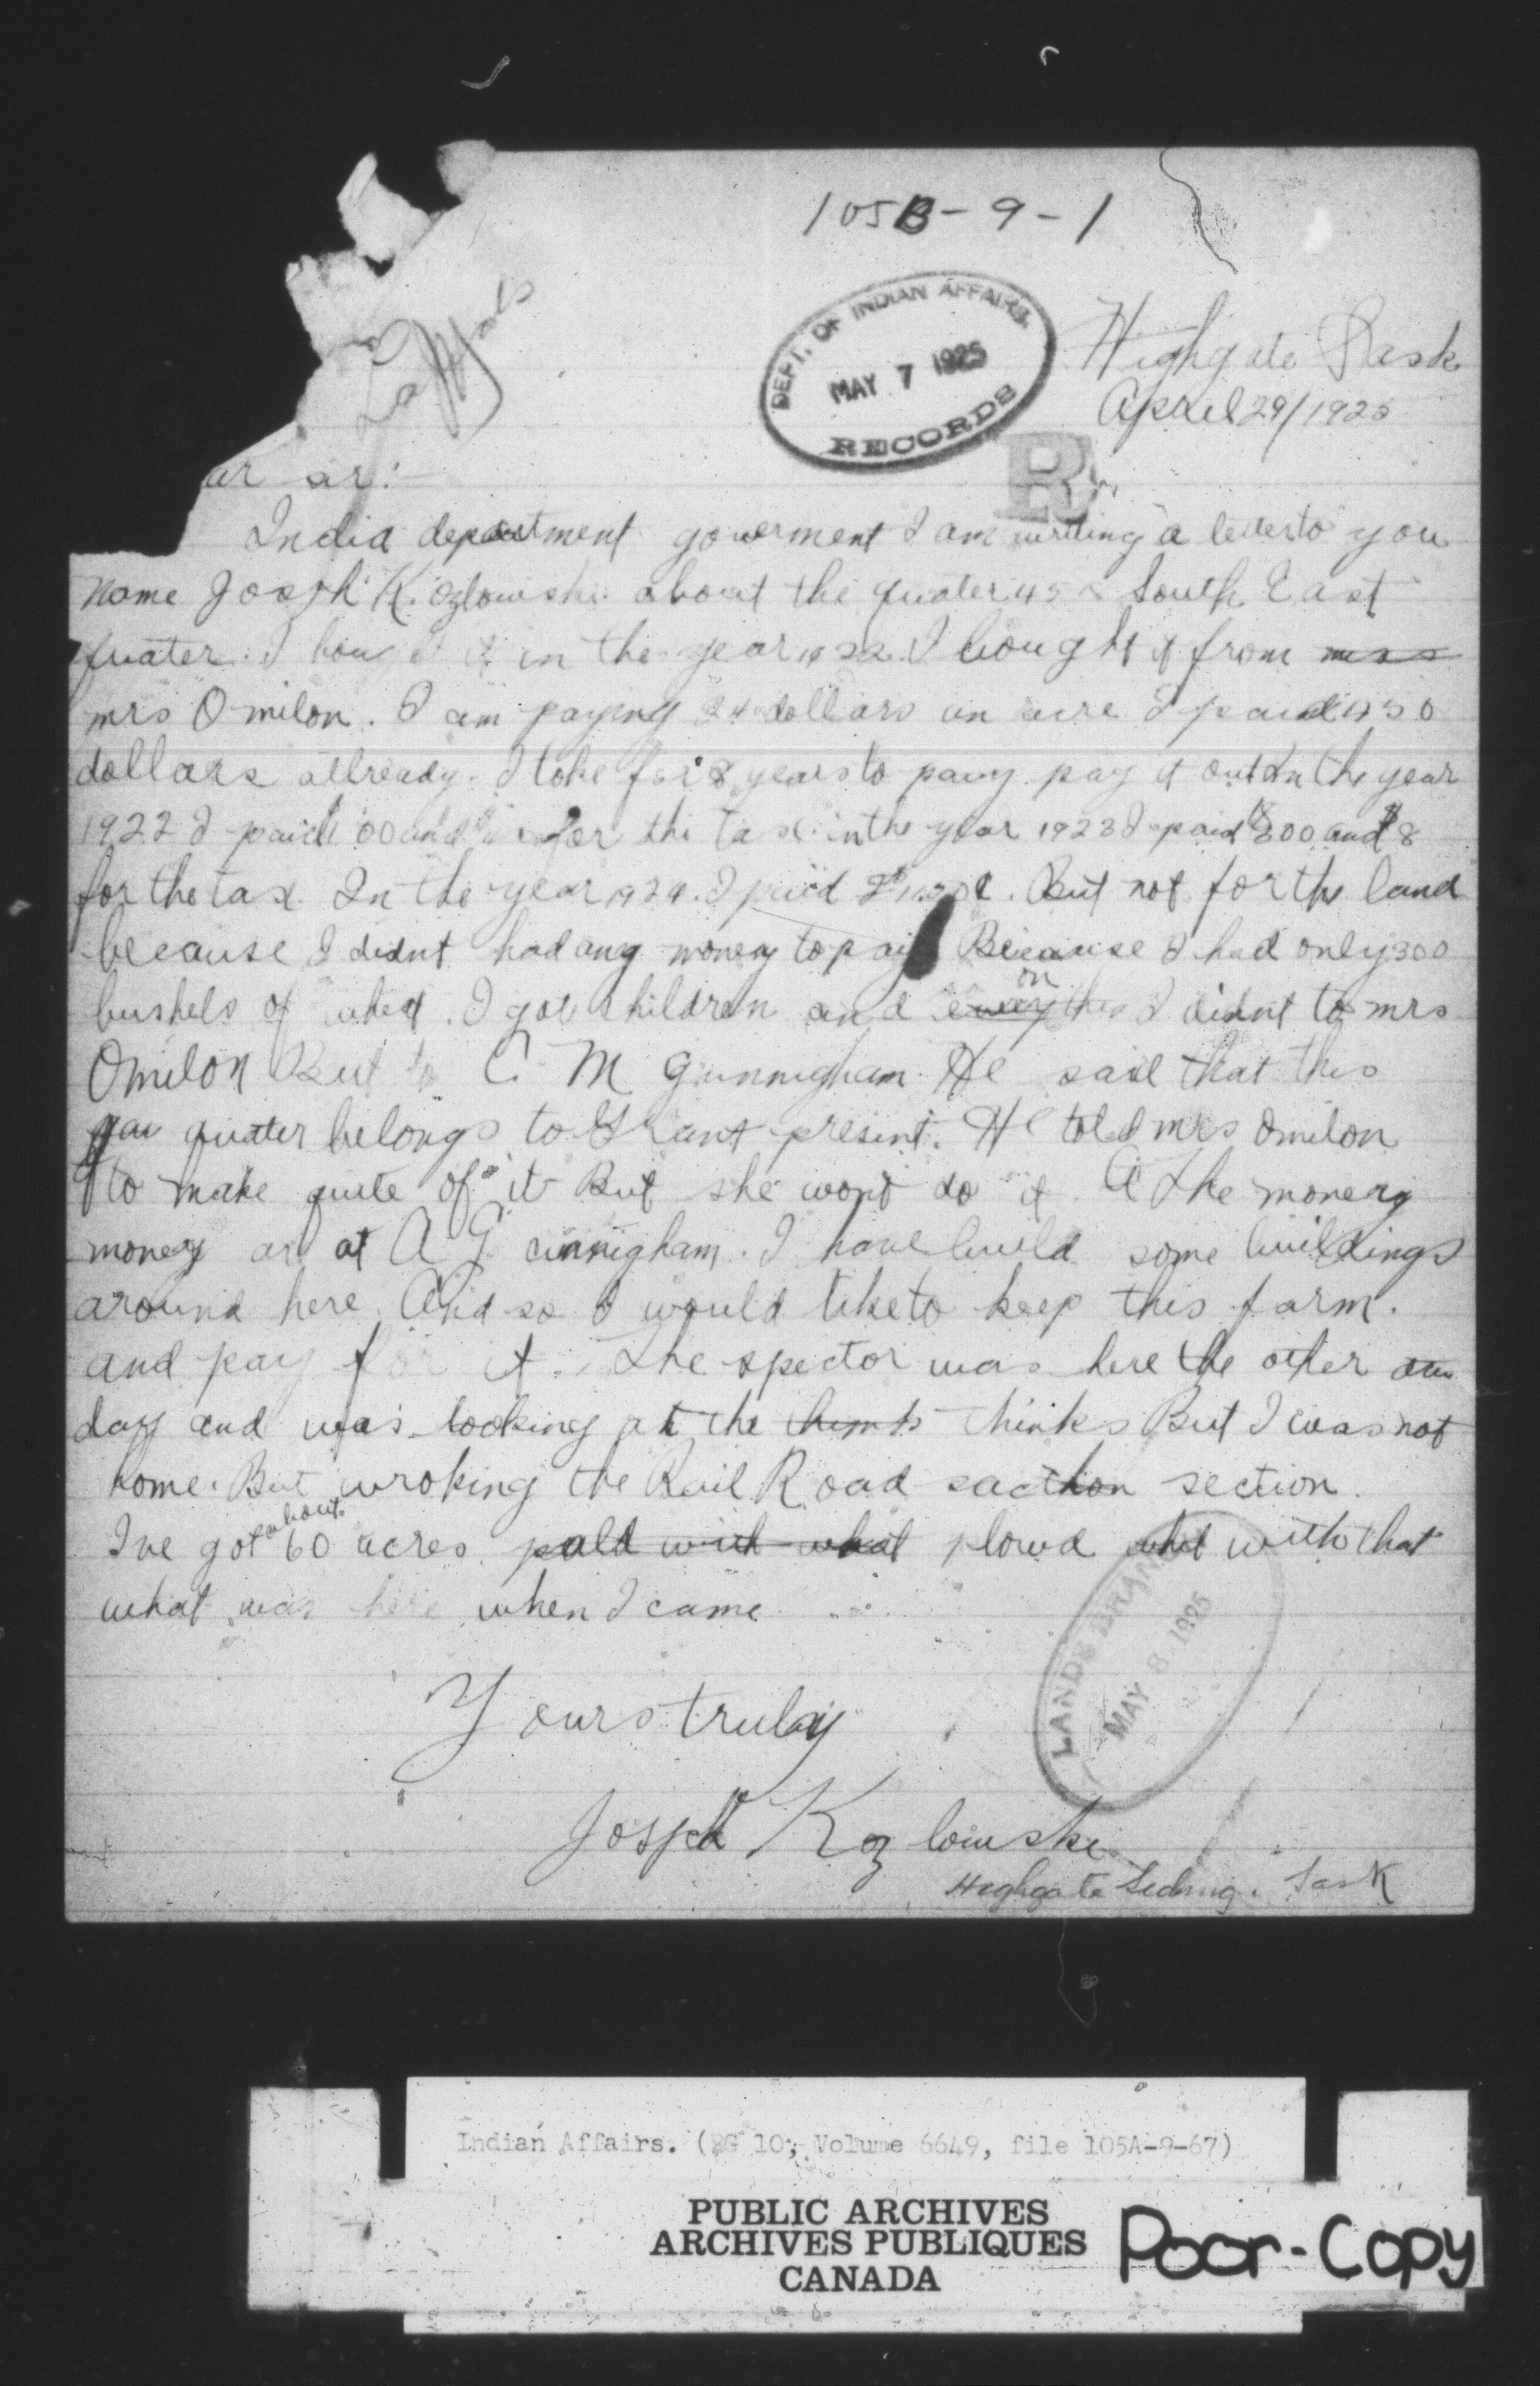 105B-9-1
DEPT. OF INDIAN AFFAIRS.
MAY 7 1925
RECORDS
Highgate Sask
April 29/1925
R
ar sir:-
India department goverment I am writing a letter to you
name Joseph Kozlowski about the quater 45 South East
quater. I bought it in the year 1922 I bought it from
mrs Omilon. I am paying 24 dollars an acre I paid 450
dollars allready. I toke for 8 years to pay it out In the year
1922 I paid and for the tax in the year 1923 I paid $300 and $8
for the tax. In the year 1924. I paid. But not for the land
because I didnt had any money to pay Because I had only 300
bushels of whet. I got children and on this I didnt to mrs
Omilon But to C. M Gunnigham He said that this
quater belongs to Grant present. He told mrs Omilon
to make quite of it But she wont do it. The money
money at A G cinnigham. I have build some buildings
around here. And so I would like to keep this farm.
and pay for it. The spector was here the other
day and was looking at the thinks But I was not
home. But wroking the Rail Road saction section.
I've got about 60 acres plowd with that
what was here when I came
LANDS BRANCH
MAY 8 1925
Yours truly
Joseph Kozlowski
Highgate Siding. Sask
Indian Affairs. (RG 10, Volume 6649, file 105A-9-67)
PUBLIC ARCHIVES
ARCHIVES PUBLIQUES
CANADA
Poor-Copy